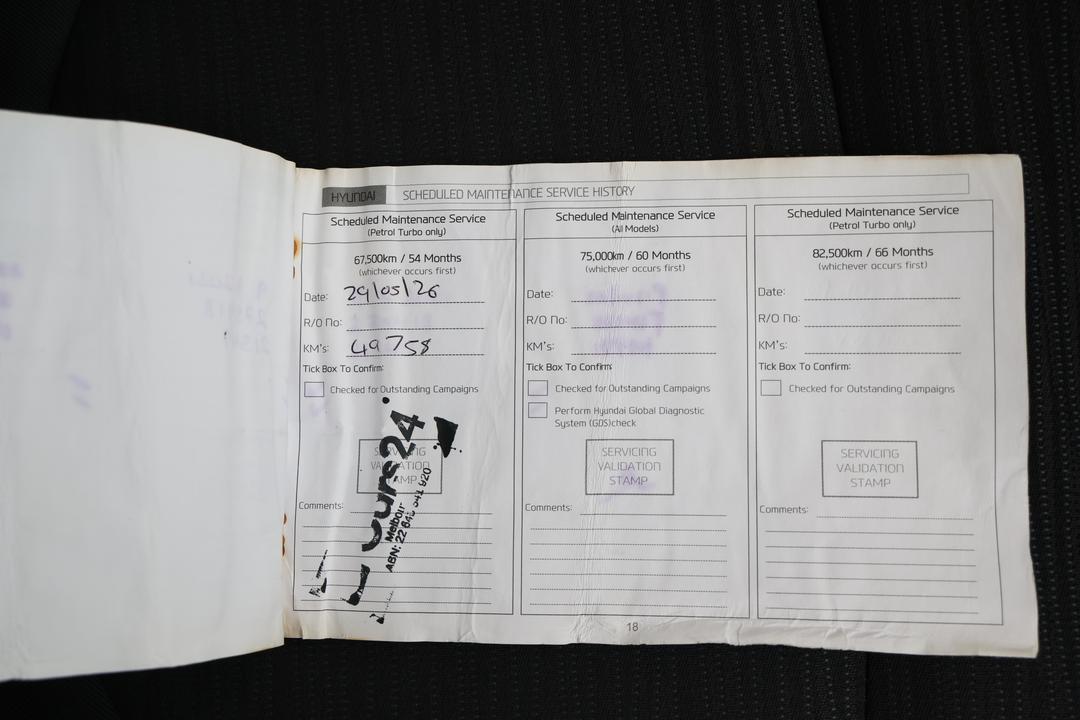 HYUNDAI SCHEDULED MAINTENANCE SERVICE HISTORY
Scheduled Maintenance Service
(Petrol Turbo only)
67,500km / 54 Months
(whichever occurs first)
Date: 29/05/26
R/O No:
KM's: 49758
Tick Box To Confirm:
Checked for Outstanding Campaigns
SERVICING
VALIDATION
STAMP
Comments:
ABN: 22 646 341 920
Scheduled Maintenance Service
(All Models)
75,000km / 60 Months
(whichever occurs first)
Date:
R/O No:
KM's:
Tick Box To Confirm:
Checked for Outstanding Campaigns
Perform Hyundai Global Diagnostic
System (GDS)check
SERVICING
VALIDATION
STAMP
Comments:
Scheduled Maintenance Service
(Petrol Turbo only)
82,500km / 66 Months
(whichever occurs first)
Date:
R/O No:
KM's:
Tick Box To Confirm:
Checked for Outstanding Campaigns
SERVICING
VALIDATION
STAMP
Comments:
18